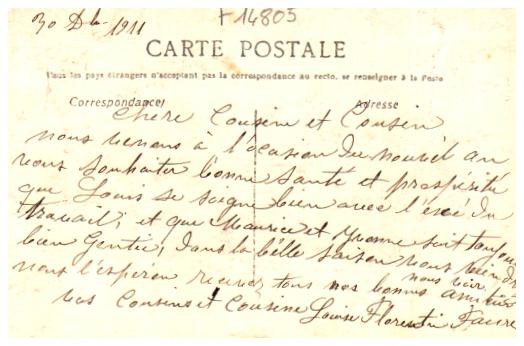 30 Dbr 1911
F14805
CARTE POSTALE
Tous les pays étrangers n'acceptant pas la correspondance au recto, se renseigner à la Poste
Correspondance
Adresse
Chere Cousine et Cousin
nous venons à l'ocasion du nouvel an
vous souhaiter bonne santé et prospérité
que Louis se soigne bien avec l'éxcé du
travail, et que Maurice et Yvonne soit toujours
bien Gentie, dans la belle saison vous viendrez
nous voir
nous l'esperon recevez tous nos bonns amitiés
vos Cousins et Cousine Louise Florentin Faure